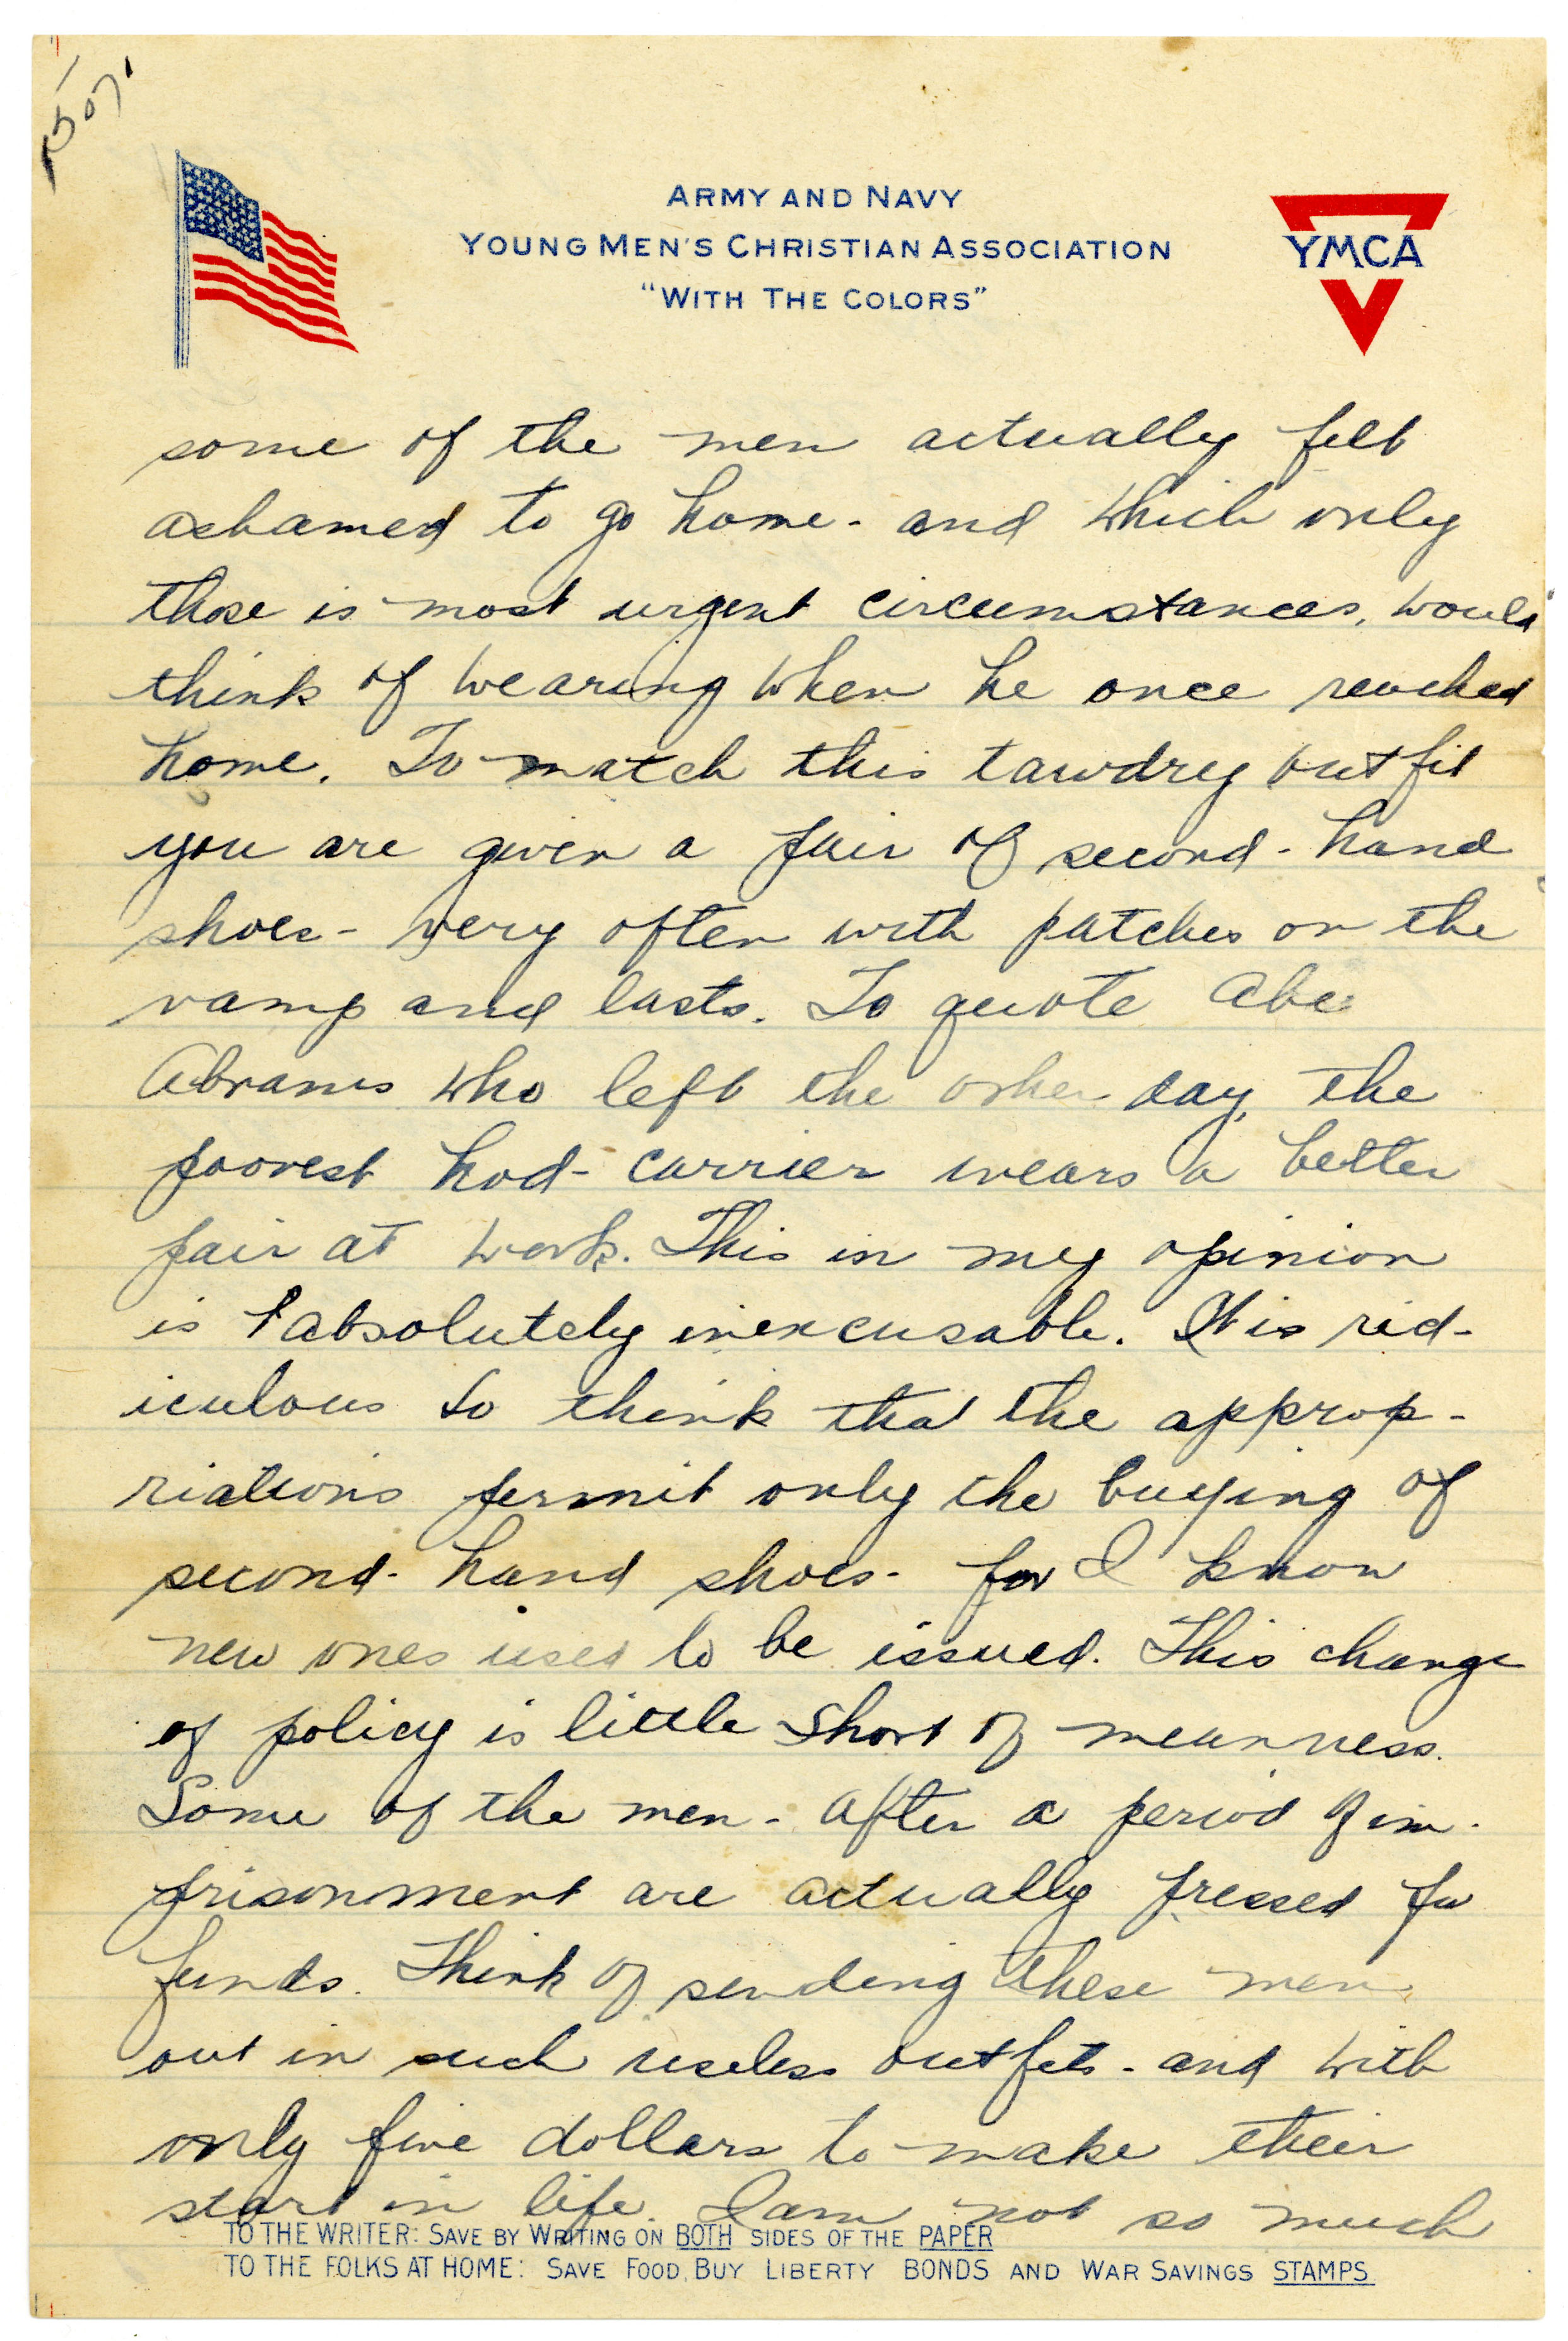 ARMY AND NAVY
YOUNG MEN'S CHRISTIAN ASSOCIATION
"WITH THE COLORS"
YMCA
some of the men actually felt
ashamed to go home - and which only
those is most urgent circumstances, would
think of wearing when he once reached
home. To match this tawdry outfit
you are given a pair of second-hand
shoes - very often with patches on the
vamp and lasts. To quote Abe
Abrams who left the other day, the
poorest hod-carrier wears a better
pair at work. This in my opinion
is absolutely inexcusable. It is rid-
iculous to think that the approp-
riations permit only the buying of
second-hand shoes - for I know
new ones used to be issued. This change
of policy is little short of meanness.
Some of the men - after a period of im-
prisonment are actually pressed for
funds. Think of sending these men
out in such useless outfits - and with
only five dollars to make their
start in life. I am not so much
TO THE WRITER: SAVE BY WRITING ON BOTH SIDES OF THE PAPER
TO THE FOLKS AT HOME: SAVE FOOD, BUY LIBERTY BONDS AND WAR SAVINGS STAMPS